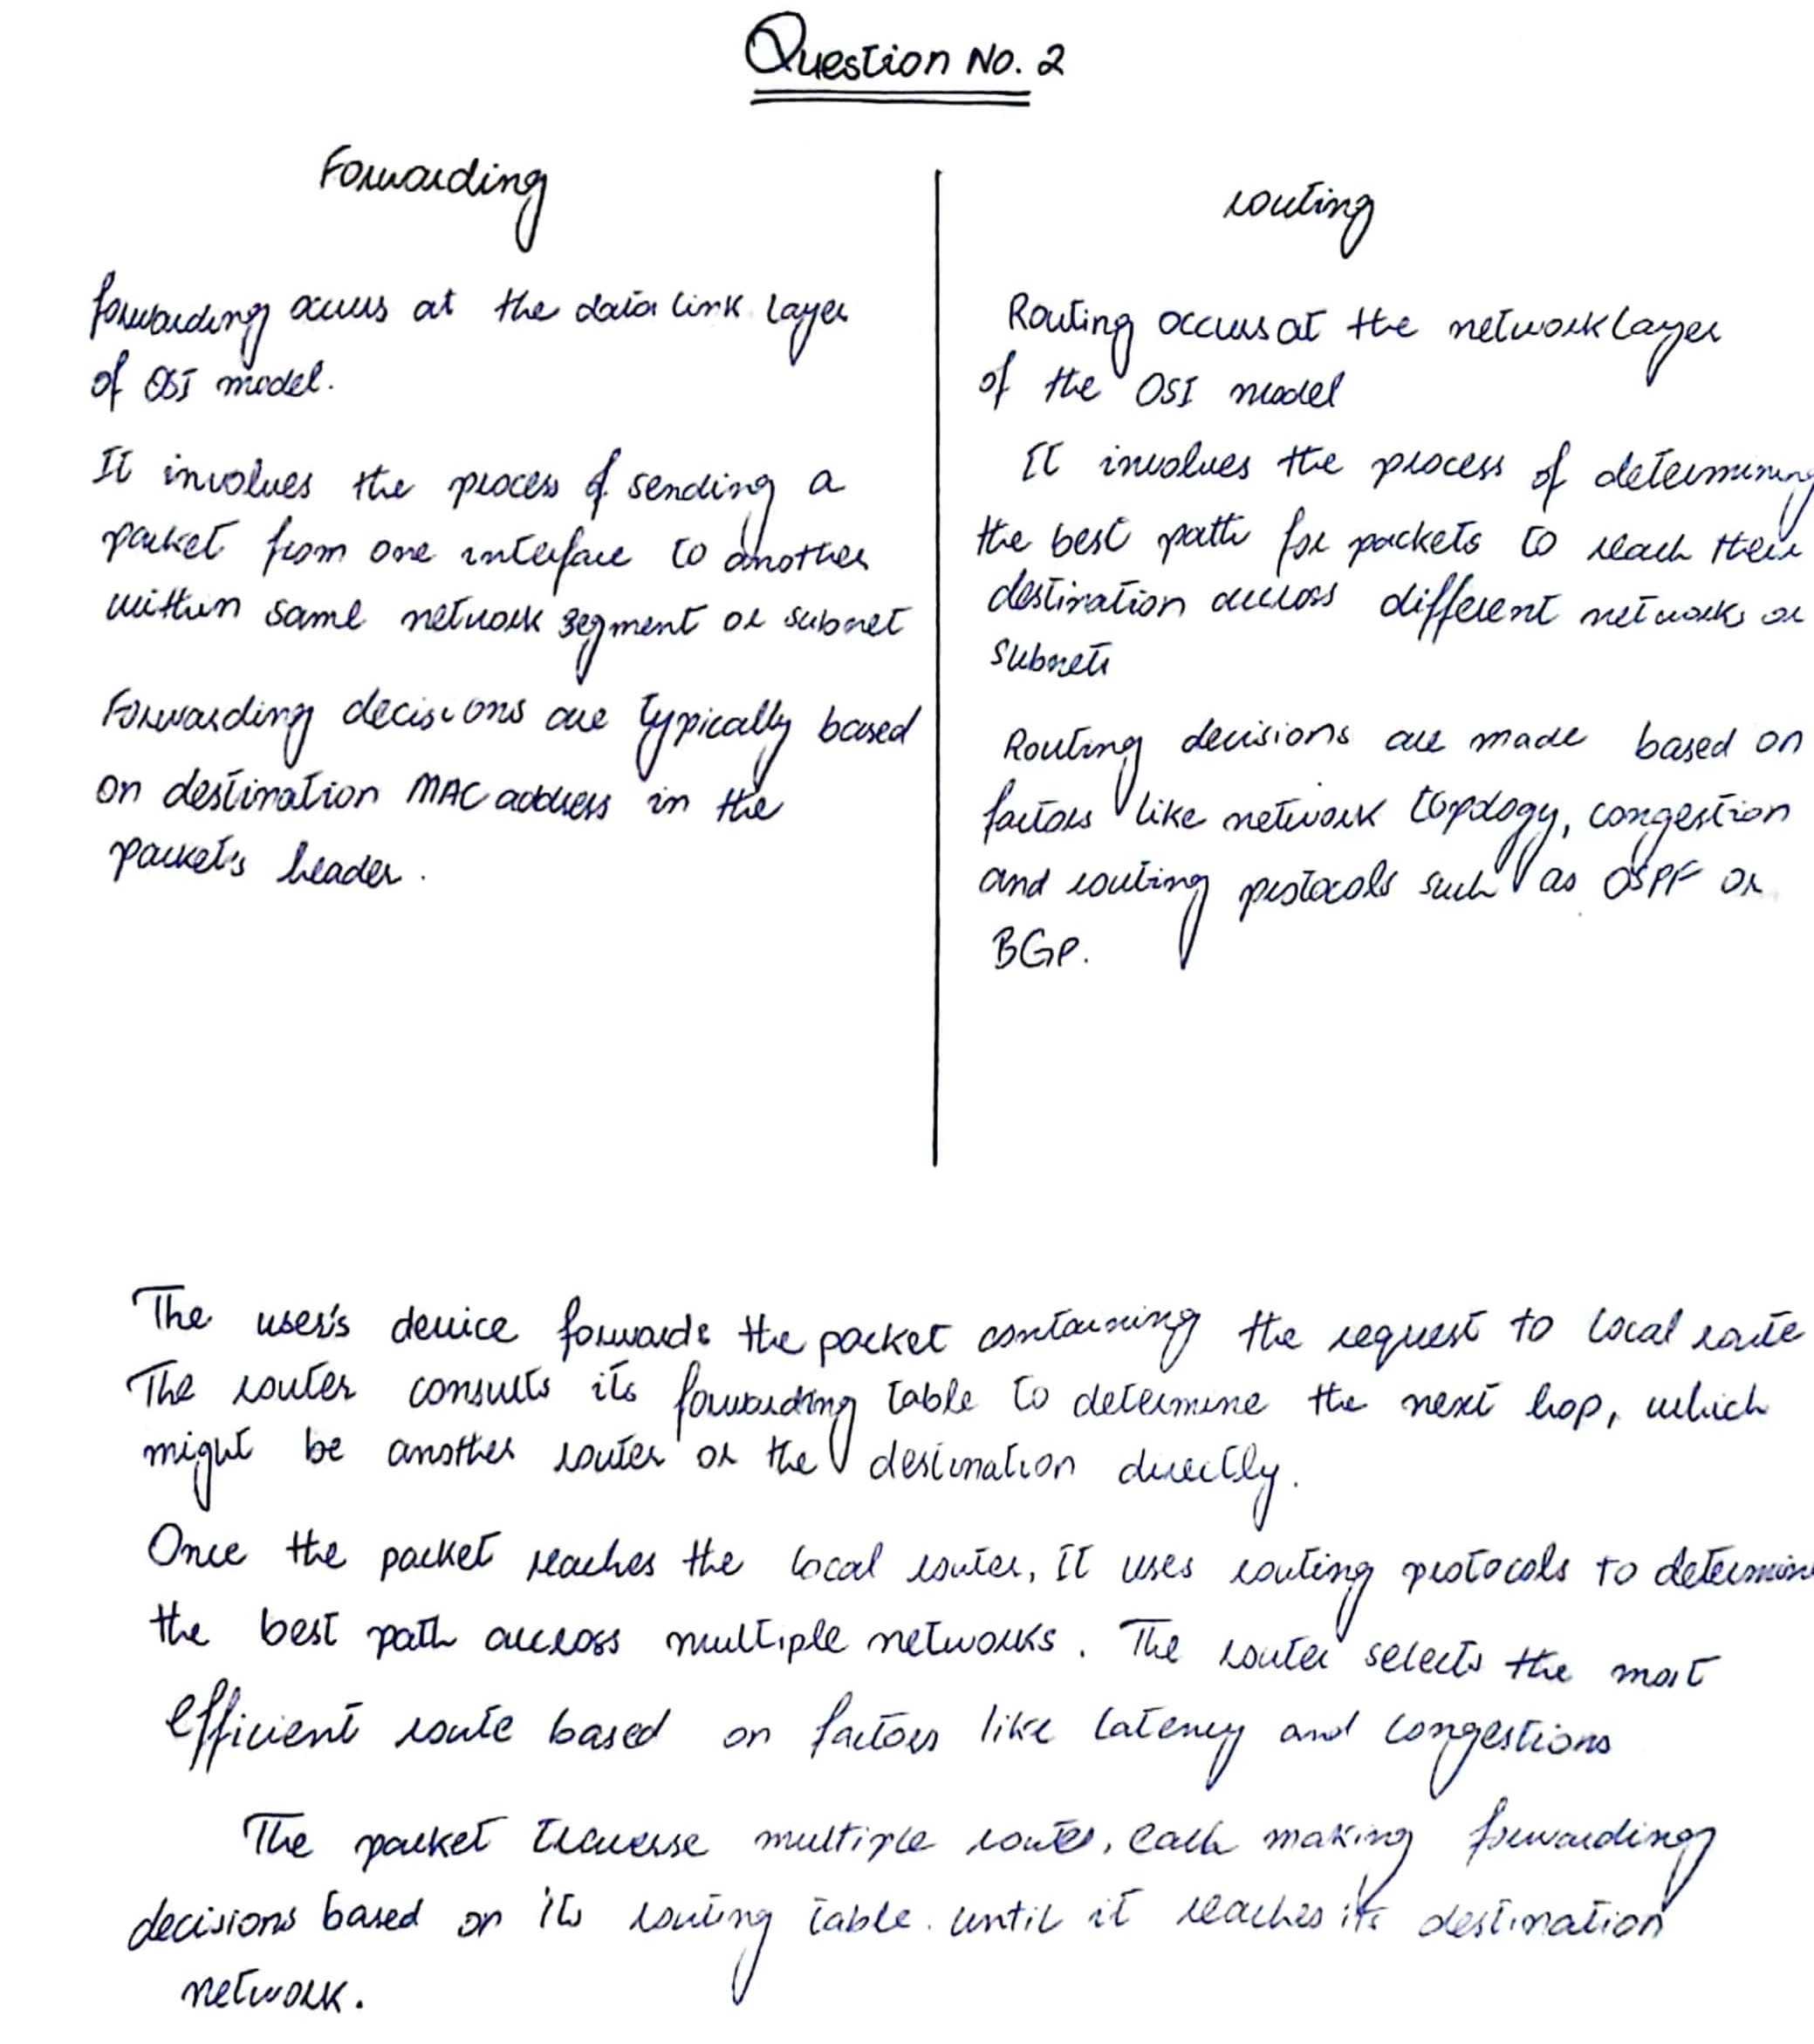 Question No. 2
Forwarding
forwarding occurs at the data link layer
of OSI model.
It involves the process of sending a
packet from one interface to another
within same network segment or subnet
Forwarding decisions are typically based
on destination MAC address in the
packet's header.
routing
Routing occurs at the network layer
of the OSI model
It involves the process of determining
the best path for packets to reach their
destination accross different networks or
subnets
Routing decisions are made based on
factors like network topology, congestion
and routing protocols such as OSPF or
BGP.
The user's device forwards the packet containing the request to local route
The router consults its forwarding table to determine the next hop, which
might be another router or the destination directly.
Once the packet reaches the local router, It uses routing protocols to determine
the best path accross multiple networks. The router selects the most
efficient route based on factors like latency and congestions
The packet traverse multiple routes, each making forwarding
decisions based on its routing table. until it reaches its destination
network.